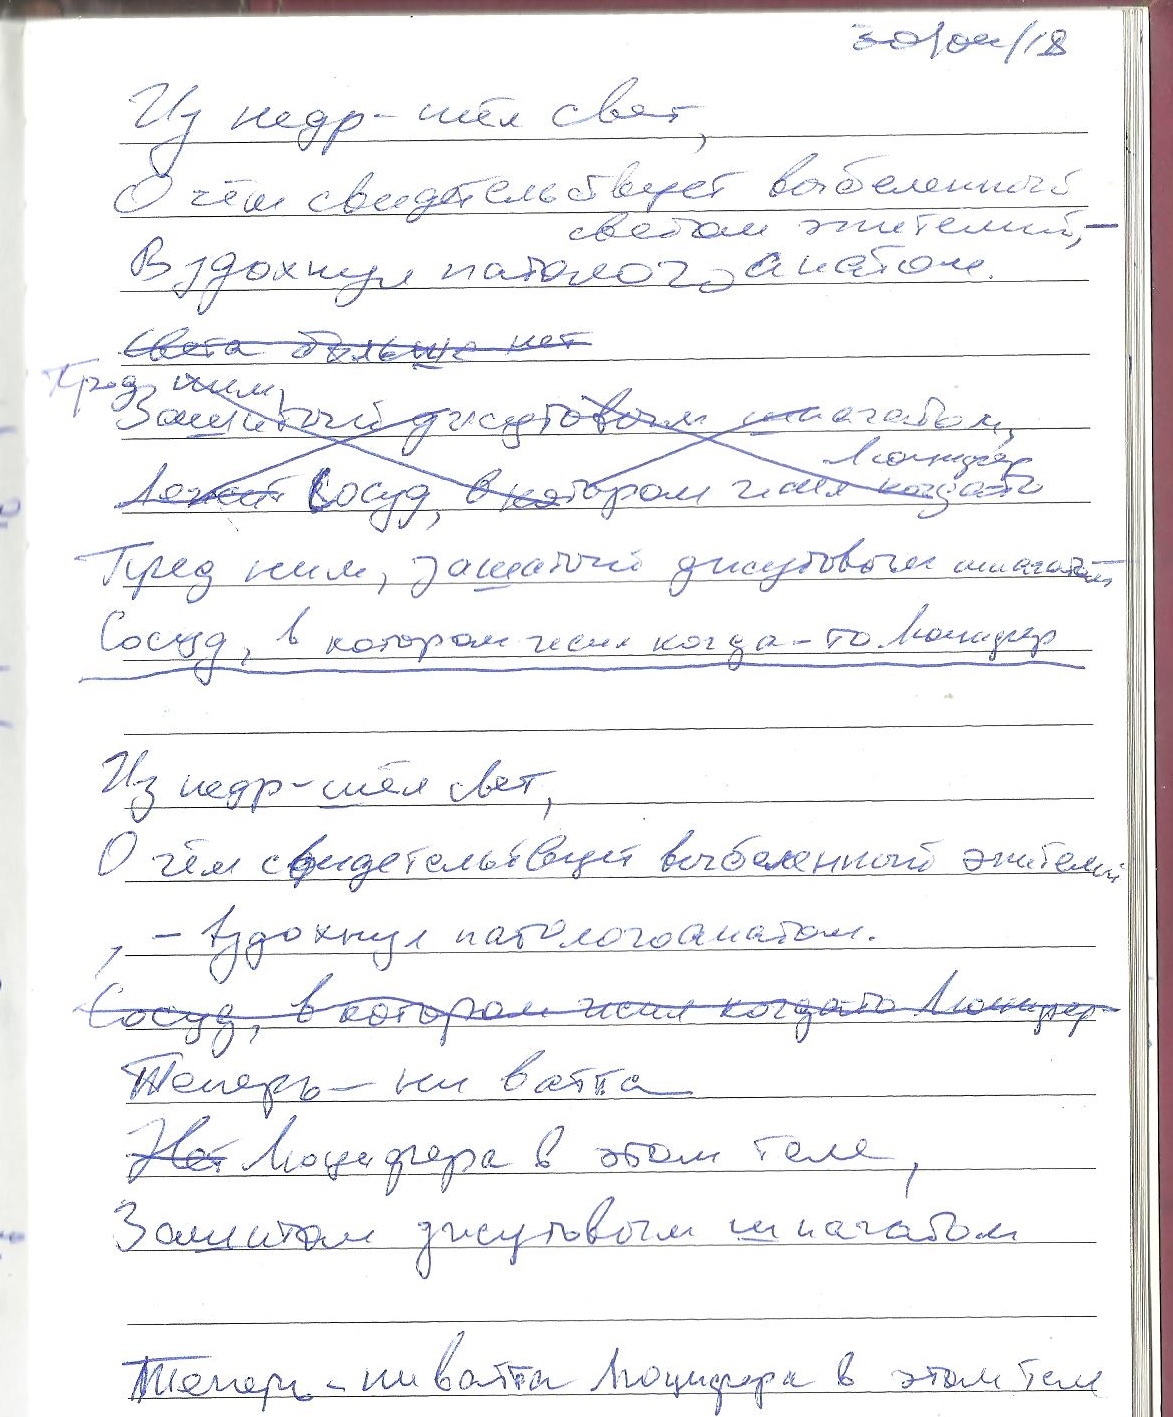 30/04/18
Из недр - шёл свет,
О чём свидетельствует выбеленный
светом эпителий, -
Вздохнул патологоанатом.
Света больше нет
Пред ним,
Зашитый джутовым шпагатом,
Люцифер
Лежит Сосуд, в котором жил когда-то
Пред ним, зашитый джутовым шпагатом
Сосуд, в котором жил когда-то Люцифер
Из недр - шёл свет,
О чём свидетельствует выбеленный эпителий
, - вздохнул патологоанатом.
Сосуд, в котором жил когда-то Люцифер
Теперь - ни ватта
Нет Люцифера в этом теле,
Зашитом джутовым шпагатом
Теперь - ни ватта Люцифера в этом теле